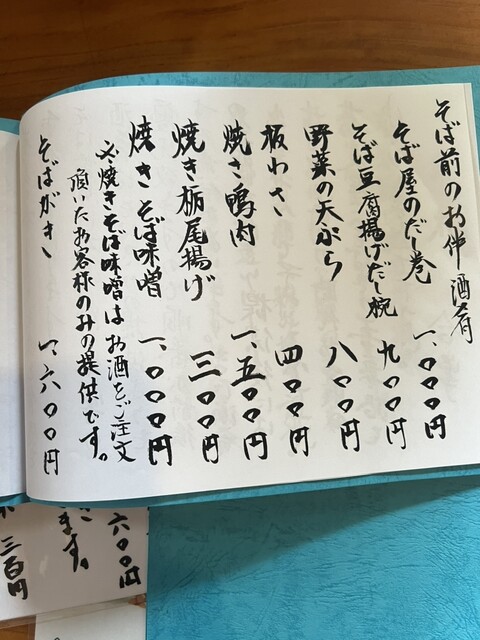 そば前のお伴 酒肴
そば屋のだし巻 一、〇〇〇円
そば豆腐揚げだし椀 九〇〇円
野菜の天ぷら 八〇〇円
板わさ 四〇〇円
焼き鴨肉 一、五〇〇円
焼き栃尾揚げ 三〇〇円
焼きそば味噌 一、〇〇〇円
※焼きそば味噌は お酒をご注文
頂いたお客様のみの提供です。
そばがき 一、六〇〇円
六〇〇円
ます。
三百円